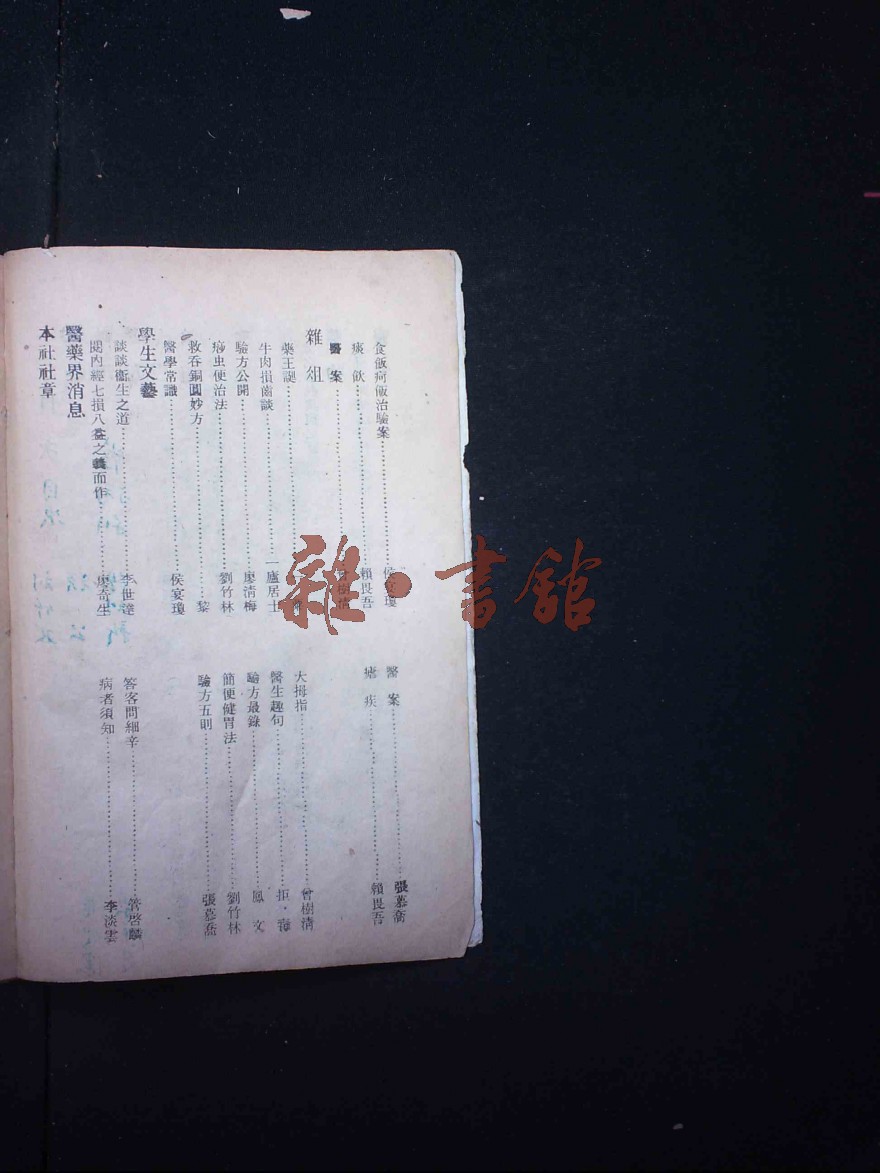 食飯疴飯治驗案……侯宴瓊
痰飲……賴畏吾
醫案……曾樹清
雜俎
藥王誕……
牛肉損齒談……一廬居士
驗方公開……廖清梅
痧虫便治法……劉竹林
救吞銅圓妙方……黎
醫學常識……侯宴瓊
學生文藝
談談衞生之道……李世達
閱內經七損八益之義而作……廖奇生
醫藥界消息
本社社章
醫案……張慕喬
瘧疾……賴畏吾
大拇指……曾樹清
醫生趣句……拒·毒
驗方最錄……鳳文
簡便健胃法……劉竹林
驗方五則……張慕喬
答客問細辛……管啓麟
病者須知……李淡雲
雜·書舘